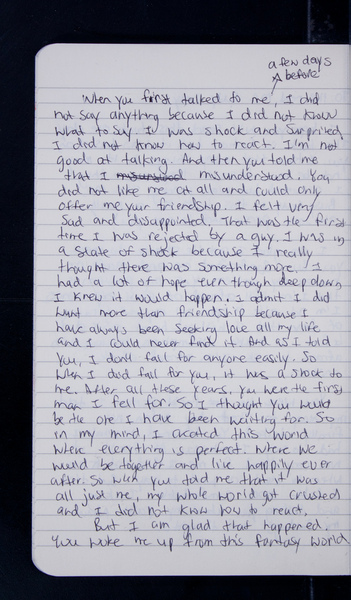 a few days
before
When you first talked to me, I did
not say anything because I did not know
what to say. It was shock and surprised.
I did not know how to react. I'm not
good at talking. And then you told me
that I misunderstood. You
did not like me at all and could only
offer me your friendship. I felt very
sad and disappointed. That was the first
time I was rejected by a guy. I was in
a state of shock because I really
thought there was something more. I
had a lot of hope even though deep down
I knew it would happen. I admit I did
want more than friendship because I
have always been seeking love all my life
and I could never find it. And as I told
you, I don't fall for anyone easily. So
when I did fall for you, it was a shock to
me. After all these years, you were the first
man I fell for. So I thought you would
be the one I have been waiting for. So
in my mind, I created this world
where everything is perfect. Where we
would be together and live happily ever
after. So when you told me that it was
all just me, my whole world got crushed
and I did not know how to react.
But I am glad that happened.
You woke me up from this fantasy world